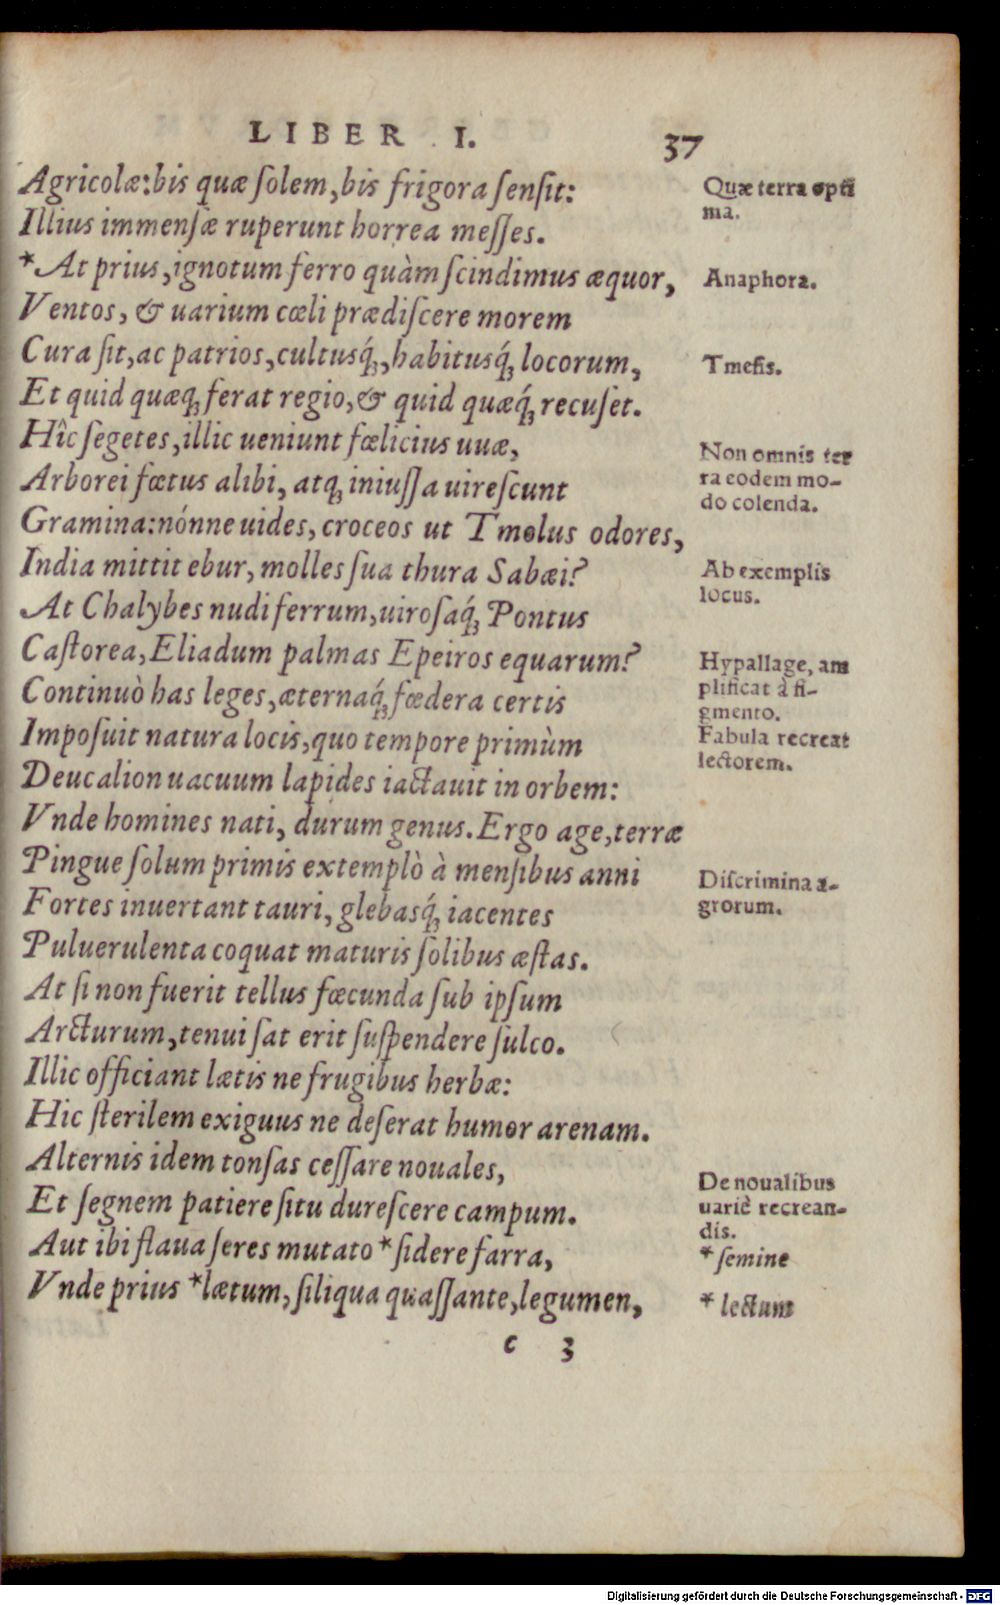 LIBER I. 37
Agricolæ:bis quæ ſolem,bis frigora ſenſit:
Illius immenſæ ruperunt horrea meſſes.
*At prius,ignotum ferro quàm ſcindimus æquor,
Ventos, & uarium cœli prædiſcere morem
Cura ſit,ac patrios,cultusq́ꝫ,habitusq́ꝫ locorum,
Et quid quæqꝫ ferat regio,& quid quæq́ꝫ recuſet.
Hîc ſegetes,illic ueniunt fœlicius uuæ,
Arborei fœtus alibi, atqꝫ iniuſſa uireſcunt
Gramina:nónne uides, croceos ut Tmolus odores,
India mittit ebur, molles ſua thura Sabæi?
At Chalybes nudi ferrum,uiroſaq́ꝫ Pontus
Caſtorea,Eliadum palmas Epeiros equarum?
Continuò has leges,æternaq́ꝫ fœdera certis
Impoſuit natura locis,quo tempore primùm
Deucalion uacuum lapides iactauit in orbem:
Vnde homines nati, durum genus. Ergo age,terræ
Pingue ſolum primis extemplò à menſibus anni
Fortes inuertant tauri, glebasq́ꝫ iacentes
Puluerulenta coquat maturis ſolibus æſtas.
At ſi non fuerit tellus fœcunda ſub ipſum
Arcturum,tenui ſat erit ſuſpendere ſulco.
Illic officiant lætis ne frugibus herbæ:
Hic ſterilem exiguus ne deſerat humor arenam.
Alternis idem tonſas ceſſare nouales,
Et ſegnem patiere ſitu dureſcere campum.
Aut ibi flaua ſeres mutato *ſidere farra,
Vnde prius *lætum, ſiliqua quaſſante,legumen,
c 3
Quæ terra opti
ma.
Anaphora.
Tmeſis.
Non omnis ter
ra eodem mo-
do colenda.
Ab exemplis
locus.
Hypallage, am
plificat à fi-
gmento.
Fabula recreat
lectorem.
Diſcrimina a-
grorum.
De noualibus
uariè recrean-
dis.
* ſemine
* lectum
Digitalisierung gefördert durch die Deutsche Forschungsgemeinschaft - DFG